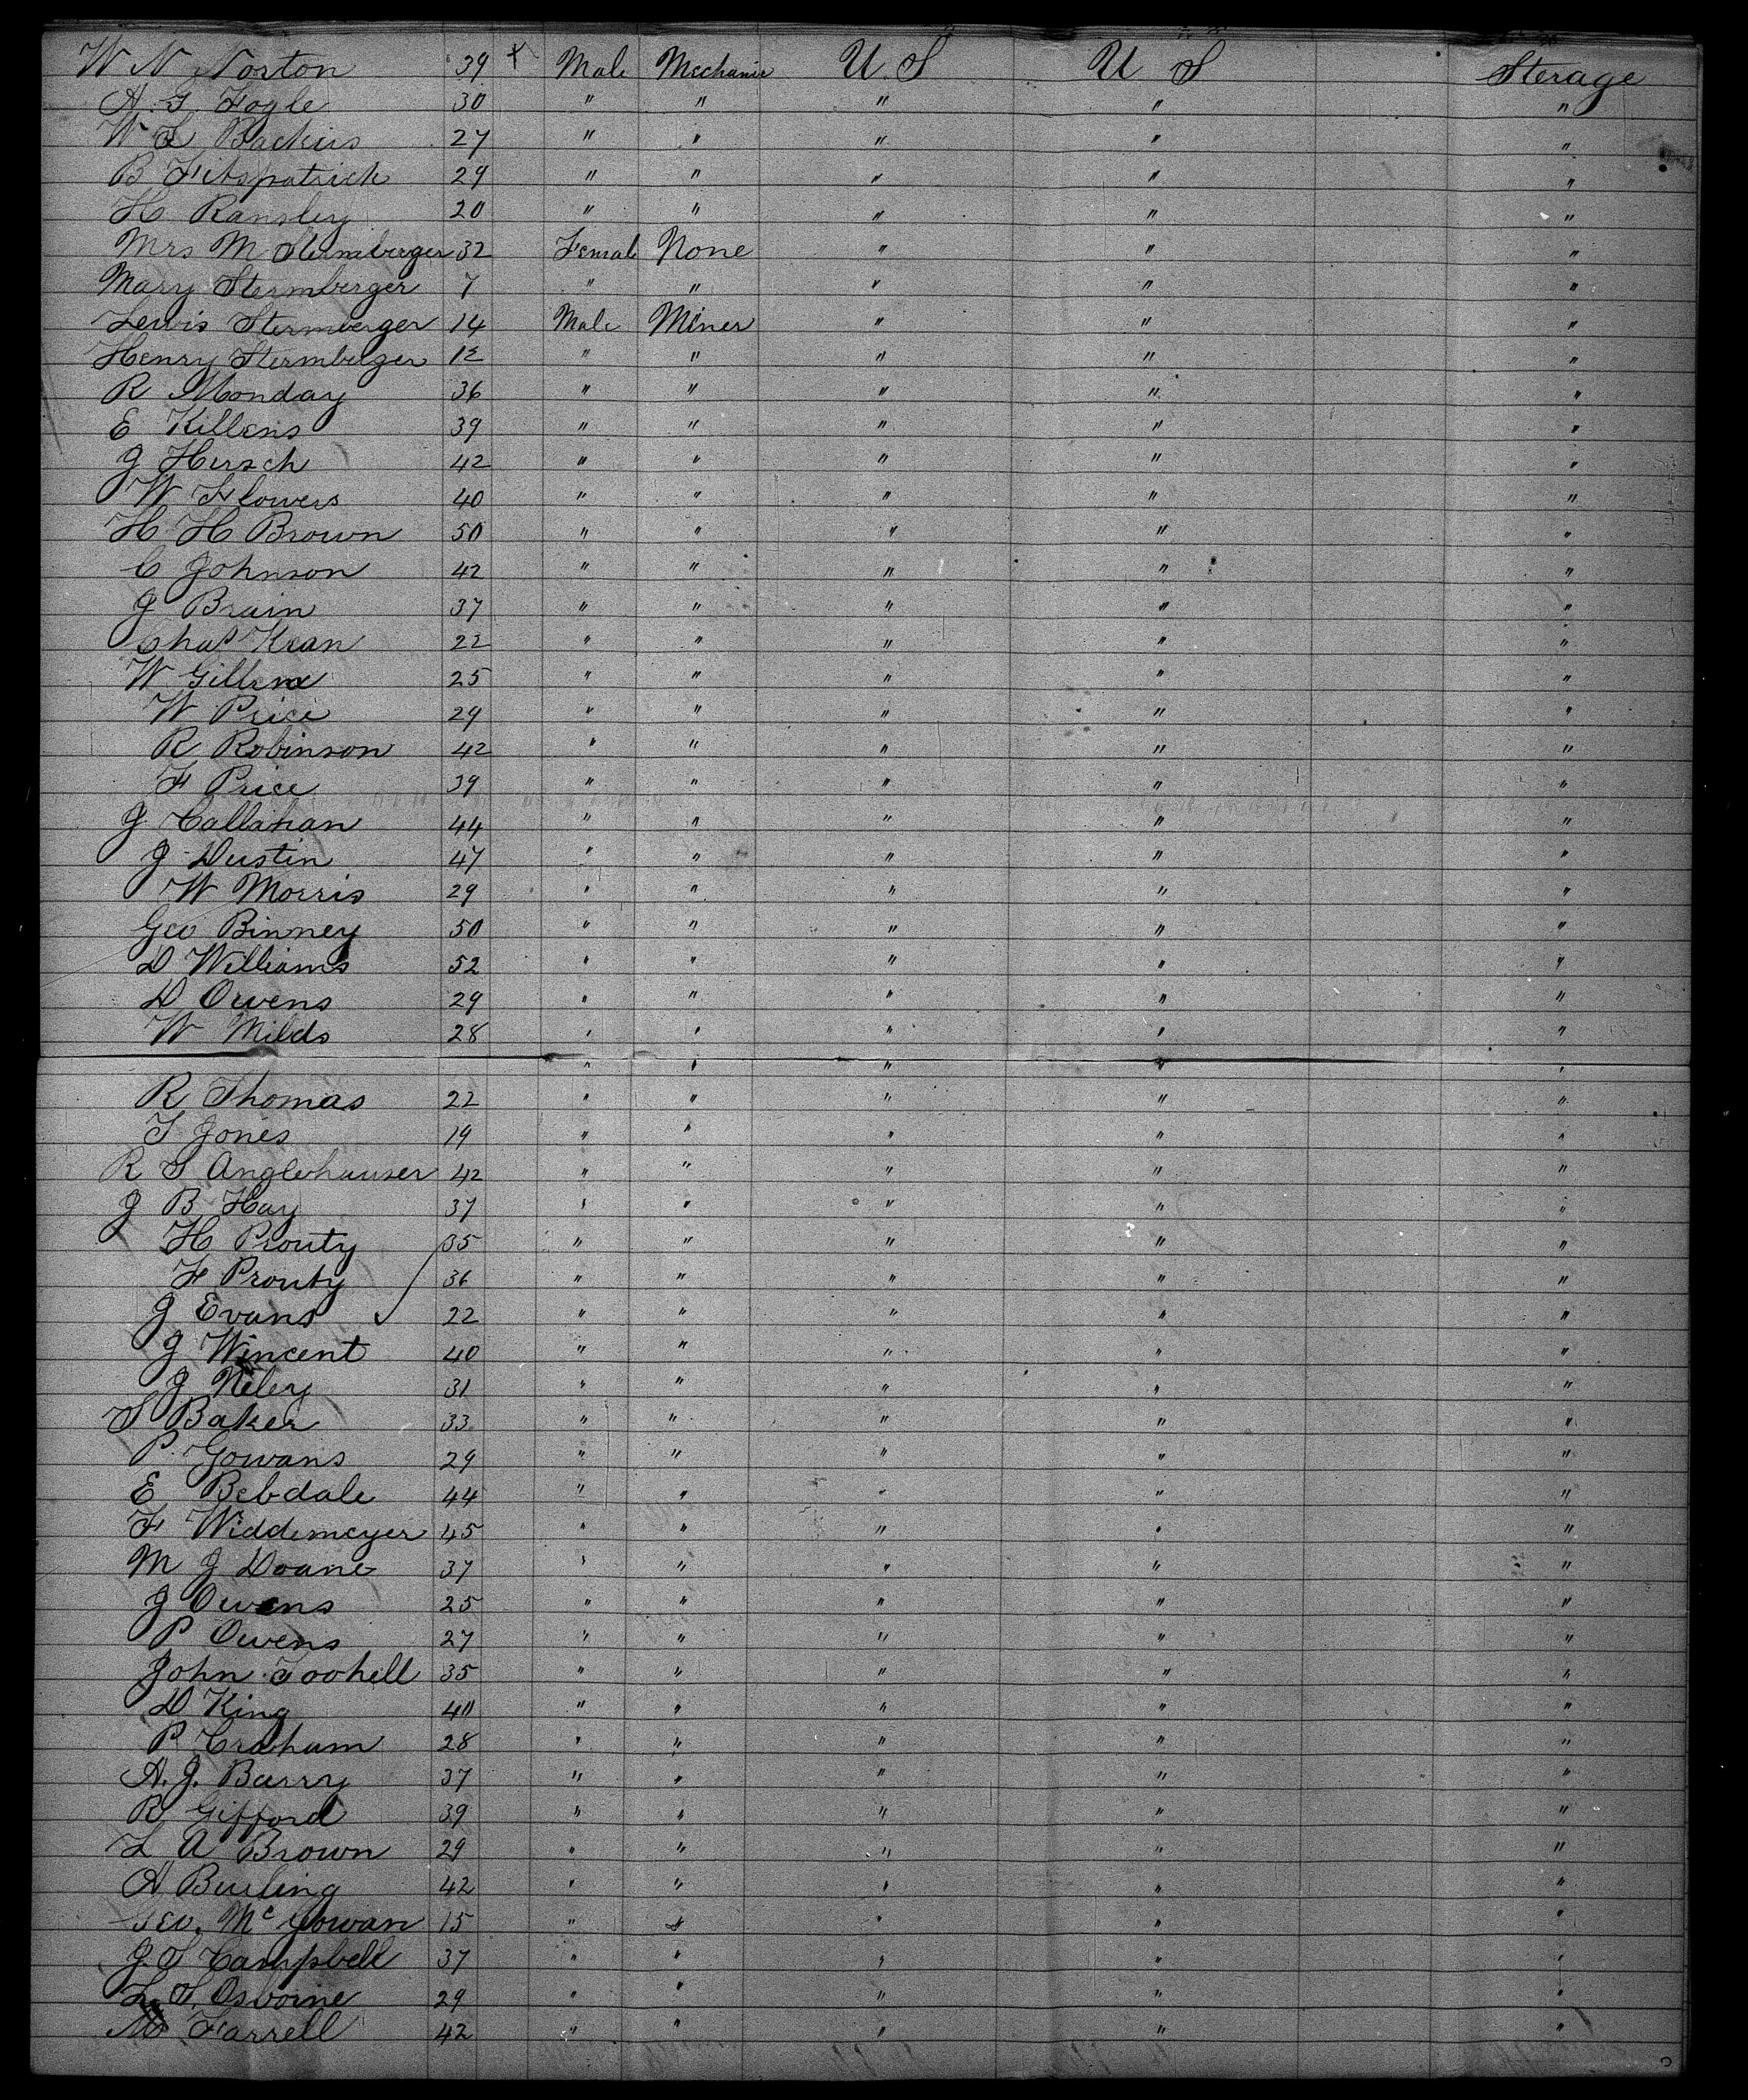 W N Norton 39 + Male Mechanic U S U S Sterage
A. G. Fogle 30 " " " " "
W L Backus 27 " " " " "
B Fitspatrick 29 " " " " "
H Ransley 20 " " " " "
Mrs M Stermberger 32 Female None " " "
Mary Stermberger 7 " " " " "
Lewis Stermberger 14 Male Miner " " "
Henry Stermberger 12 " " " " "
R Monday 36 " " " " "
E Killens 39 " " " " "
J Hersch 42 " " " " "
W Flowers 40 " " " " "
H H Brown 50 " " " " "
C Johnson 42 " " " " "
J Brain 37 " " " " "
Chas Kean 22 " " " " "
W 25 " " " " "
W Price 29 " " " " "
R Robinson 42 " " " " "
F Price 39 " " " " "
J. Callahan 44 " " " " "
J Dustin 47 " " " " "
W Morris 29 " " " " "
Geo Binney 50 " " " " "
D Williams 52 " " " " "
D Owens 29 " " " " "
W Milds 28 " " " " "
" " " " "
R Thomas 22 " " " " "
T Jones 19 " " " " "
R S Anglehauser 42 " " " " "
J B Hay 37 " " " " "
H Prouty 35 " " " " "
F Prouty 36 " " " " "
J Evans 22 " " " " "
J Wincent 40 " " " " "
J Neley 31 " " " " "
S Baker 33 " " " " "
P. Gowans 29 " " " " "
E Bebdale 44 " " " " "
F Widdemeyer 45 " " " " "
M J Doane 37 " " " " "
J Owens 25 " " " " "
P Owens 27 " " " " "
John Toohell 35 " " " " "
D King 40 " " " " "
P Craham 28 " " " " "
A. J. Barry 37 " " " " "
R Gifford 39 " " " " "
L A Brown 29 " " " " "
A Burling 42 " " " " "
Geo. Mc Gowan 15 " " " " "
J. S Campbell 37 " " " " "
L. S. Osborne 29 " " " " "
M Farrell 42 " " " " "